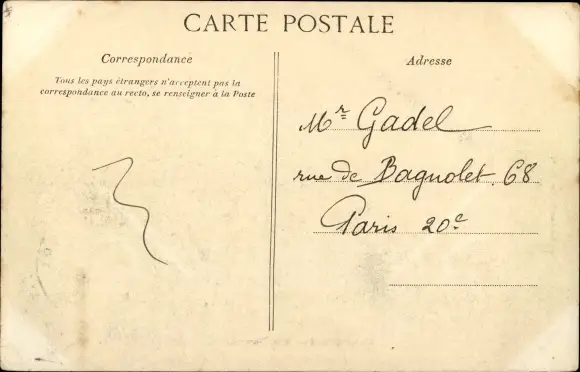 CARTE POSTALE
Correspondance
Tous les pays étrangers n'acceptent pas la
correspondance au recto, se renseigner à la Poste
Adresse
Mr Gadel
rue de Bagnolet. 68
Paris 20e